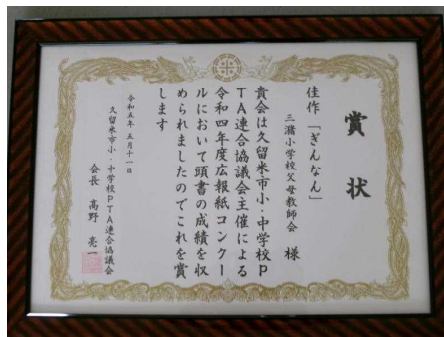 賞状
佳作「ぎんなん」
三潴小学校父母教師会 様
貴会は久留米市小・中学校P
TA連合協議会主催による
令和四年度広報紙コンクー
ルにおいて頭書の成績を収
められましたのでこれを賞
します
令和五年 五月十一日
久留米市小・中学校PTA連合協議会
会長 髙野 亮一